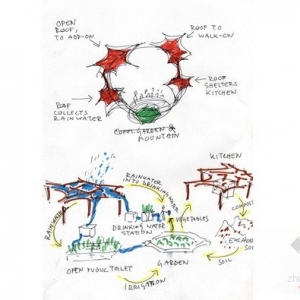 OPEN
ROOF,
TO ADD-ON
ROOF TO
WALK-ON
ROOF
SHELTERS
KITCHEN
ROOF
COLLECTS
RAINWATER
GARDEN &
MOUNTAIN
KITCHEN
RAINWATER
INTO DRINKING WATER
RAINWATER
COMPOST
DRINKING WATER
STATION
VEGETABLES
SOIL
OPEN PUBLIC TOILET
GARDEN
SOIL
IRRIGATION
zh